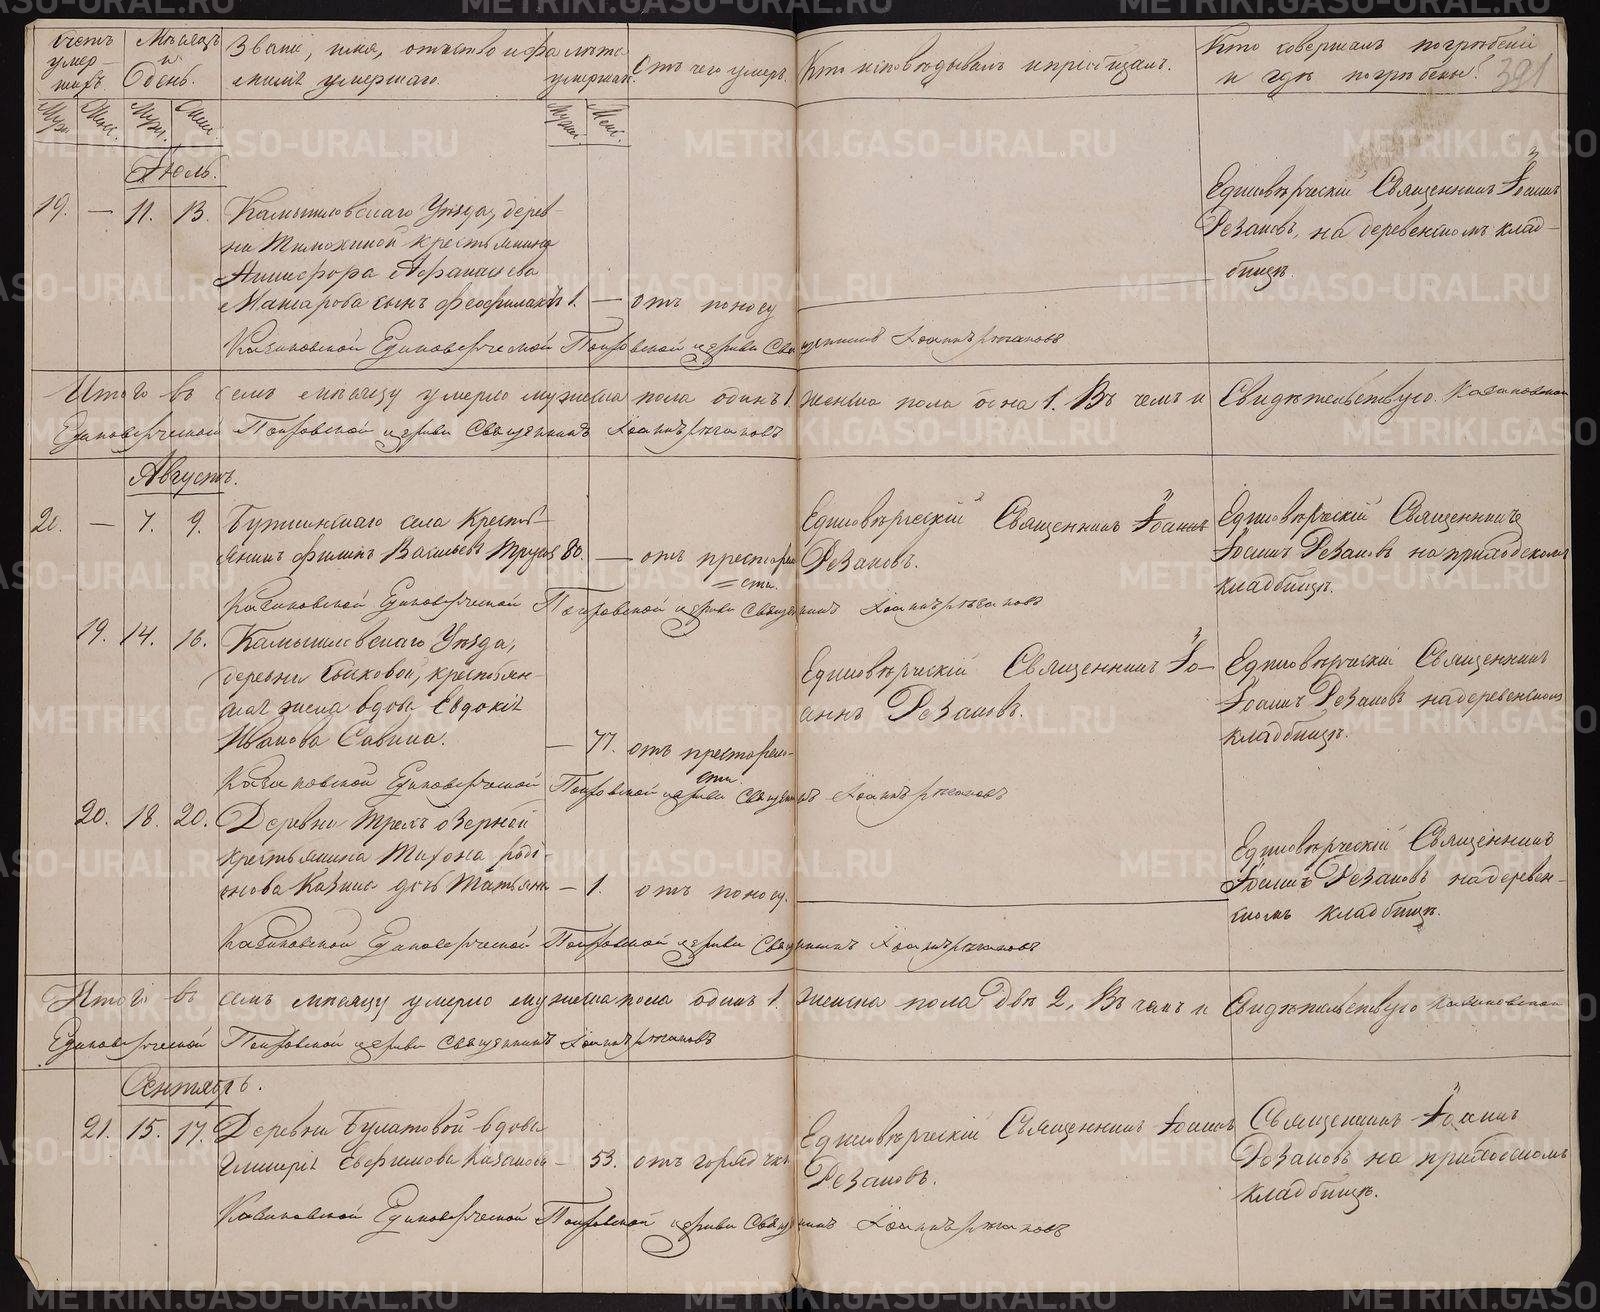 Счетъ умер-шихъ.
Мѣсяцъ и день.
Званіе, имя, отчество и фамилія умершаго.
Лѣта умершаго.
Отъ чего умеръ.
Кто исповѣдывалъ и пріобщалъ.
Кто совершалъ погребеніе и гдѣ погребены?
391
Муж. Жен. Муж. Жен. Муж. Жен.
Іюль.
19. — 11. 13. Камышловскаго Уѣзда, дерев-
ни Тимохиной крестьянина
Никифора Афанасьева
Макарова сынъ Феофилактъ 1. — отъ поносу
Единовѣрческій Священникъ Іоаннъ
Рѣзановъ, на деревенскомъ клад-
бищѣ.
Единоверческой Покровской церкви Священникъ
Итого въ семъ мѣсяцу умерло мужеска пола одинъ 1. женска пола одна 1. Въ чемъ и Свидѣтельствую.
Единоверческой Покровской церкви Священникъ
Августъ.
20. — 7. 9. села Кресть-
янинъ Филипъ Васильевъ 80. — отъ престарело-
сти.
Единовѣрческій Священникъ Іоаннъ
Рѣзановъ.
Единовѣрческій Священникъ
Іоаннъ Рѣзановъ на приходскомъ
кладбищѣ.
Единоверческой Покровской церкви Священникъ
19. 14. 16. Камышловскаго Уѣзда,
деревни Быковой, крестьян-
ская жена вдова Евдокія
Иванова Савина. — 77. отъ престарело-
сти.
Единовѣрческій Священникъ Іо-
аннъ Рѣзановъ.
Единовѣрческій Священникъ
Іоаннъ Рѣзановъ на деревенскомъ
кладбищѣ.
Единоверческой Покровской церкви Священникъ
20. 18. 20. Деревни Трехъ озерной
крестьянина Тихона Роді-
онова дочь Татьяна — 1. отъ поносу.
Единовѣрческій Священникъ
Іоаннъ Рѣзановъ на деревен-
скомъ кладбищѣ.
Единоверческой Покровской церкви Священникъ
Итого въ семъ мѣсяцу умерло мужеска пола одинъ 1. женска пола двѣ 2. Въ чемъ и Свидѣтельствую
Единоверческой Покровской церкви Священникъ
Сентябрь.
21. 15. 17. Деревни Булатовой вдова
Гликерія Евфимова Казанова — 53. отъ горячки
Единовѣрческій Священникъ Іоаннъ
Рѣзановъ.
Священникъ Іоаннъ
Рѣзановъ на приходскомъ
кладбищѣ.
Единоверческой Покровской церкви Священникъ
METRIKI.GASO-URAL.RU